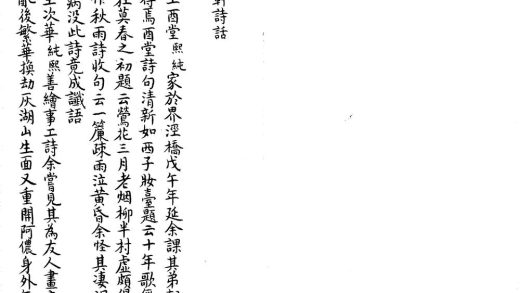 軒詩話
西堂熙純家於界涇橋戊午年延余課其弟
焉酉堂詩句清新如西子妝臺題云十年歌
在莫春之初題云鶯花三月老烟柳半村虛頗
作秋雨詩收句云一簾疎雨泣黃昏余怪其凄
病没此詩竟成讖語
次華純熙善繪事工詩余嘗見其為友人畫
亂後繁華換劫灰湖山生面又重開阿儂身外